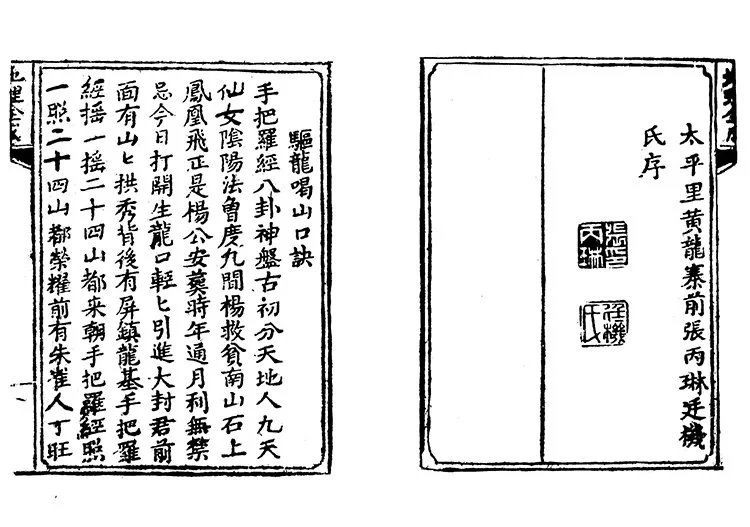 太平里黃龍寨前張丙琳廷機
氏序
張印
丙琳
廷機
氏
驅龍喝山口訣
手把羅經八卦神盤古初分天地人九天
仙女陰陽法魯慶九間楊救貧南山石上
鳳凰飛正是楊公安葬時年通月利無禁
忌今日打開生龍口輕匕引進大封君前
面有山匕拱秀背後有屏鎮龍基手把羅
經搖一搖二十四山都來朝手把羅經照
一照二十四山都榮耀前有朱雀人丁旺